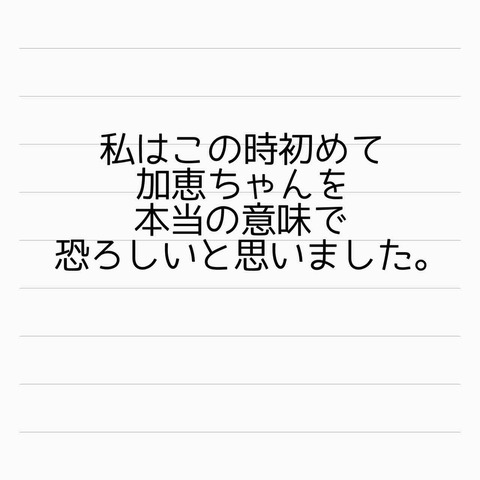 私はこの時初めて
加恵ちゃんを
本当の意味で
恐ろしいと思いました。